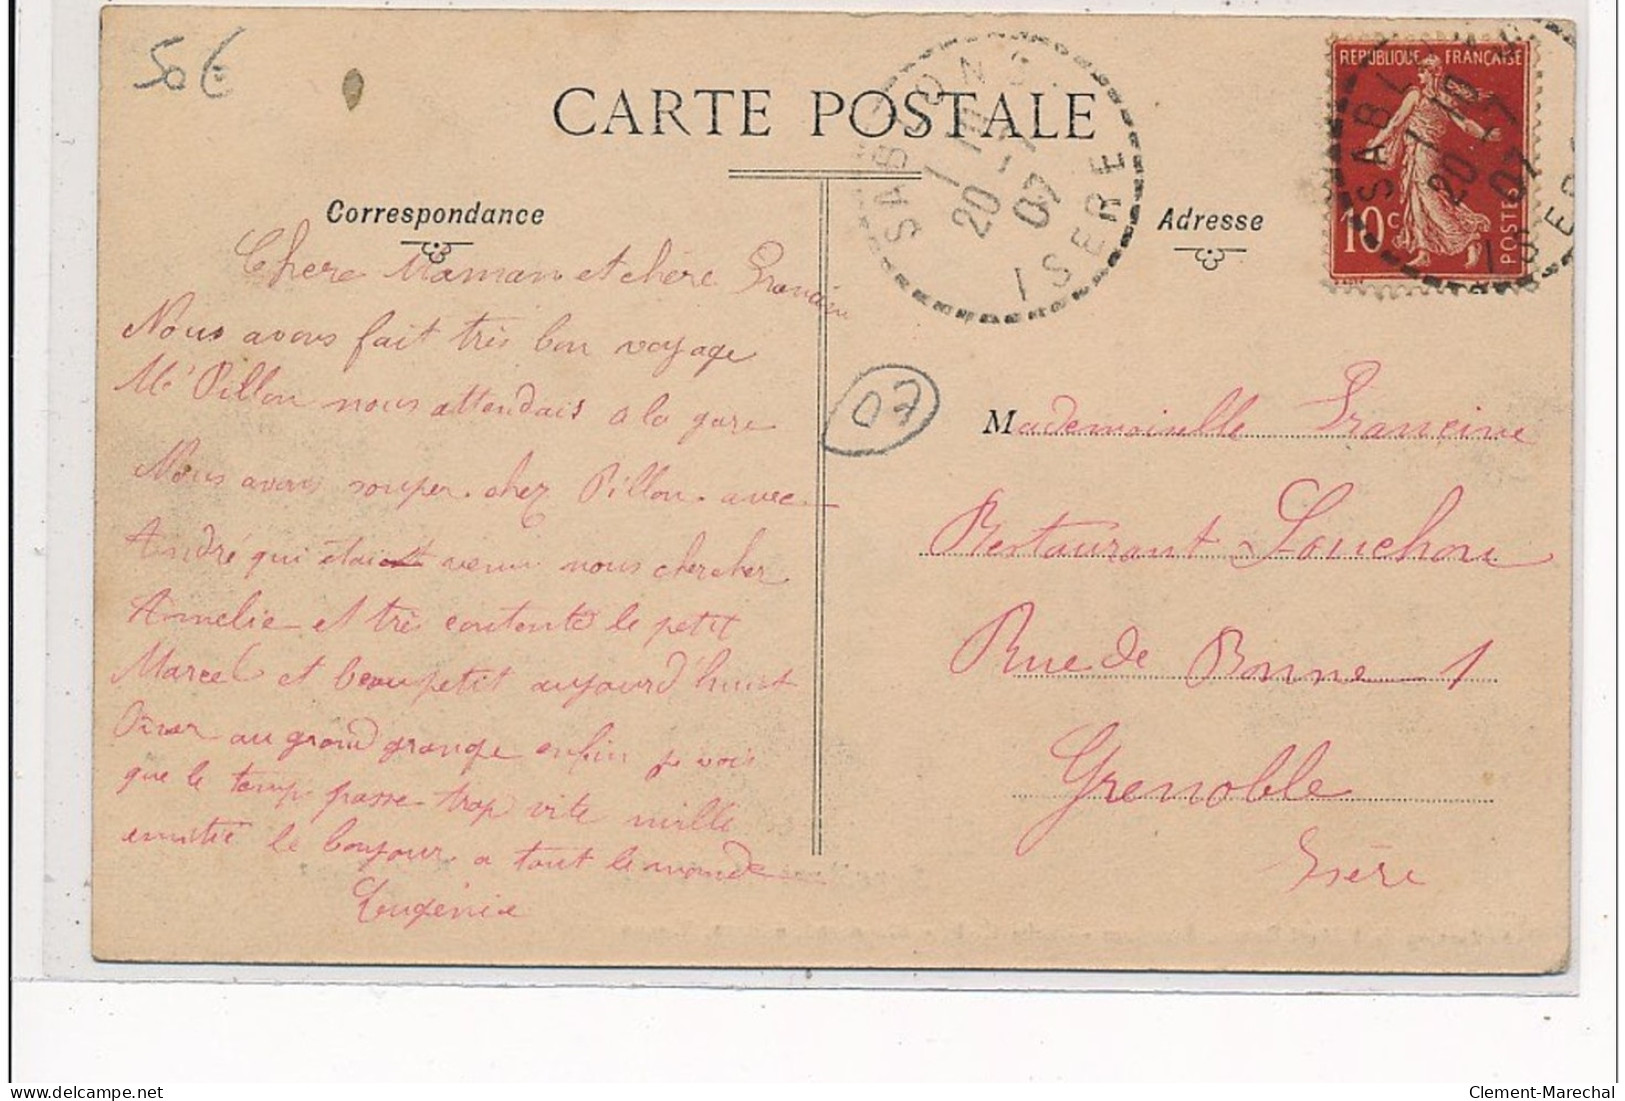 50€
CARTE POSTALE
Correspondance
Chere Maman et chère Francine
Nous avons fait très bon voyage
Me Pillon nous attendais a la gare
Nous avons souper chez Pillon avec
André qui étai venu nous chercher
Amelie et trè contente le petit
Marcel et beau petit aujourd'huit
au grand grange enfin je vois
que le temp passe trop vite mille
amitié le bonjour a tout le monde
Eugénie
SABLONS ISERE
20 -7 07
07
Adresse
REPUBLIQUE FRANÇAISE
10c POSTES
SABLONS ISERE
20 -7 07
Mademoiselle Francine
Restaurant Louchon
Rue de Bonne 1
Grenoble
Isère
150 x 102 mm
Clement-Marechal